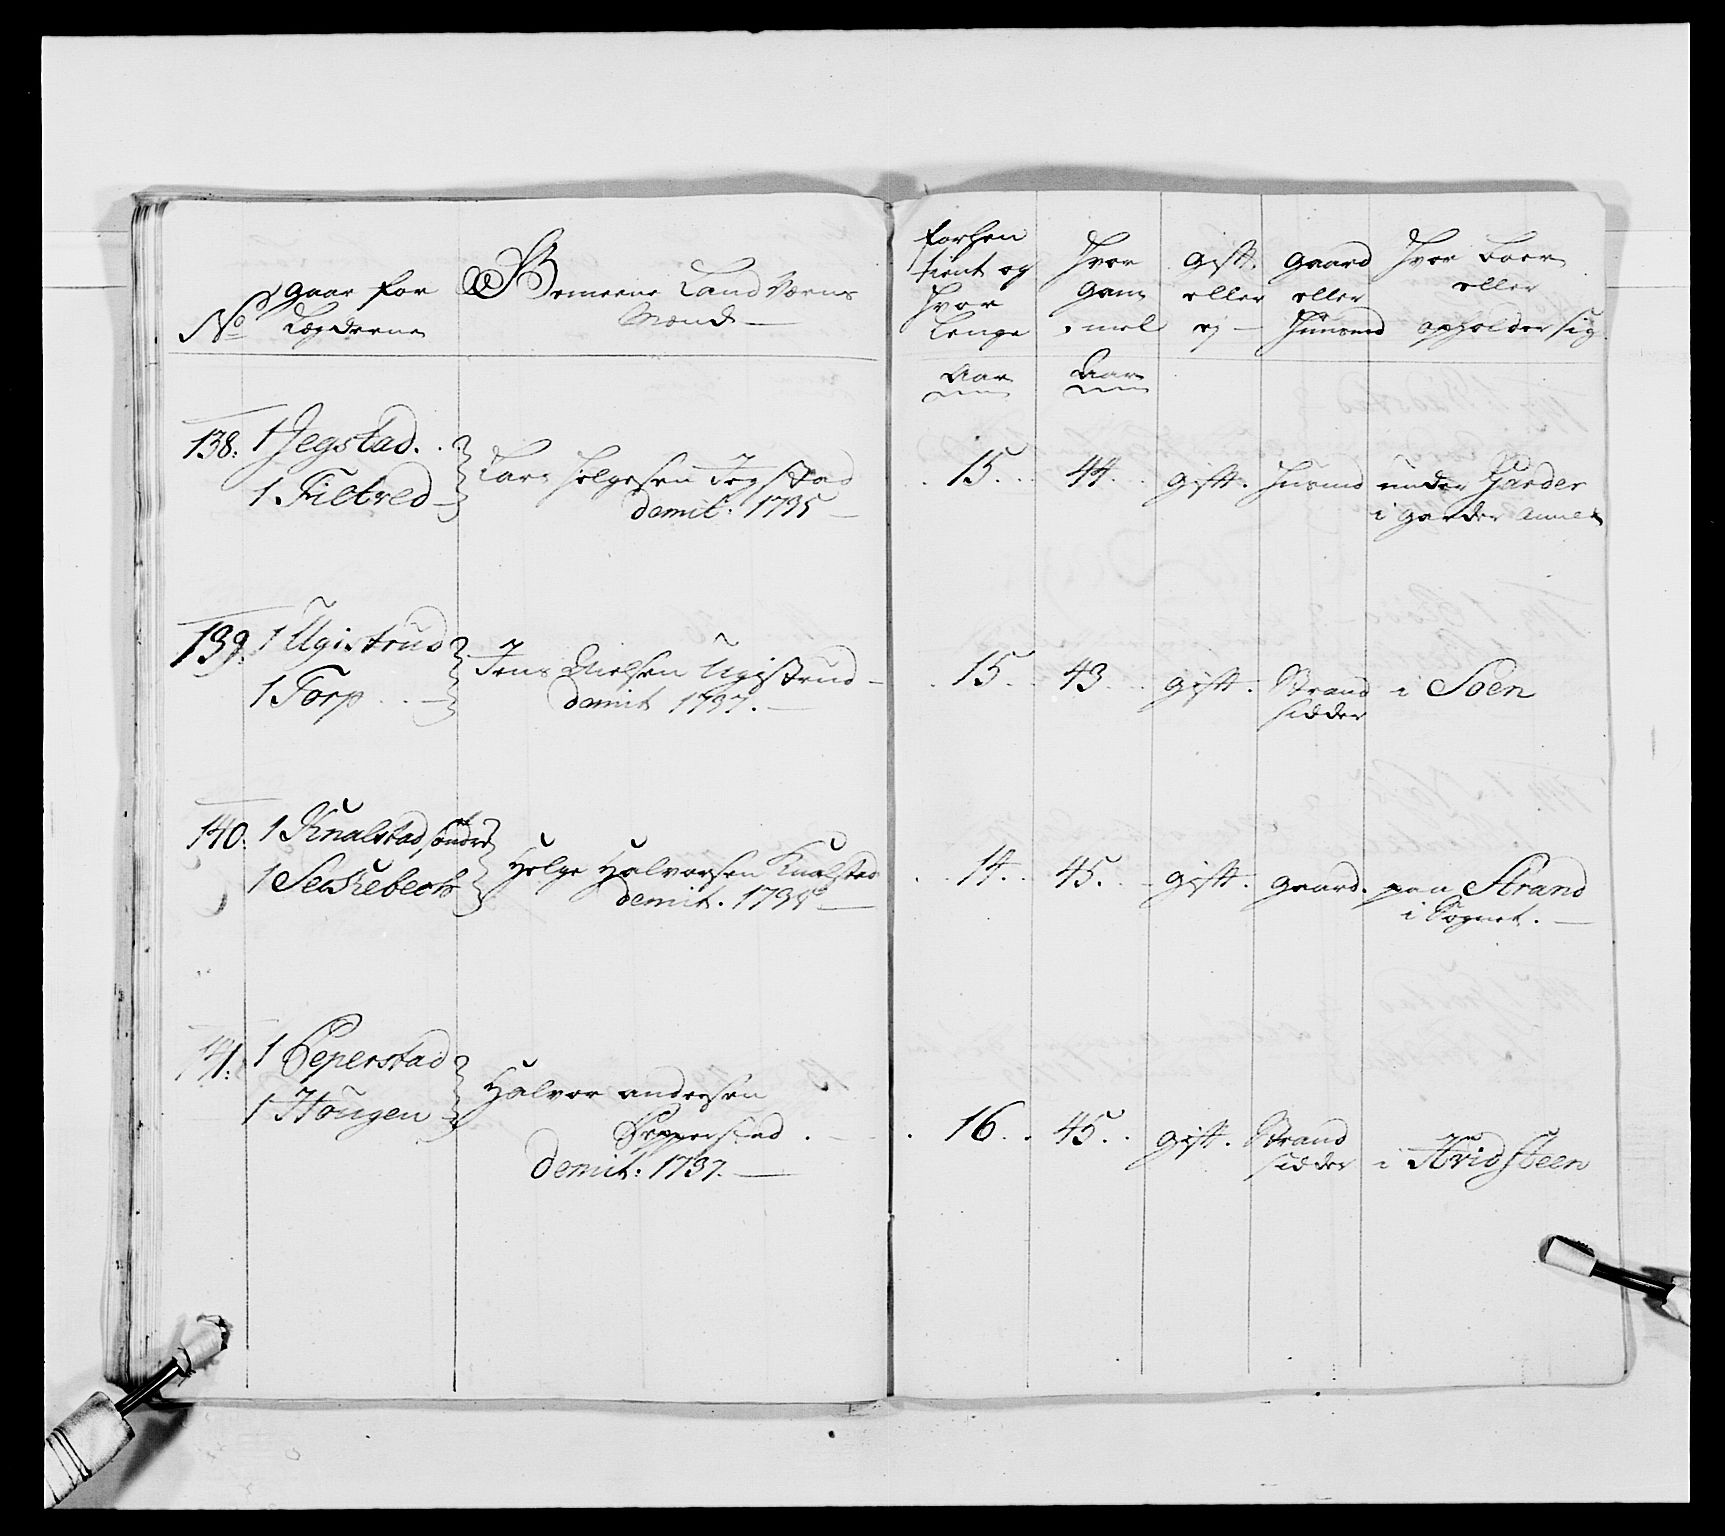 No
gaar for
Legderne
Gemeene Land Værns
Mænd —
forhen
tient og
Hvor
lenge
Hvor
gam
mel
gift.
eller
ej —
gaard
eller
Huusmd
Hvor boer
eller
opholder sig.
Aar
Aar
138: 1 Jegstad. . .
1 Filtved —
Lars Helgesen Jegstad
demit. 1735 —
. 15. . 44. . gift. Husmd under Garder
i Garder Annex
139: 1 Ugistrud
1 Torp . . —
Jens Nielsen Ugistrud —
demit 1737. —
. 15. . 43. . gift. Strand i Soen
sidder
140: 1 Knalstad, søndre
1 Seskebech
Helge Halvorsen Knalstad
demit. 1735 —
. . 14. . 45. . gift. gaard. paa Strand
i Sognet. —
141: 1 Peperstad
1 Hougen
Halvor andersen
Pepperstad . —
demit: 1737. —
. 16. . 45. . gift. Strand
sidder i Hvidsteen